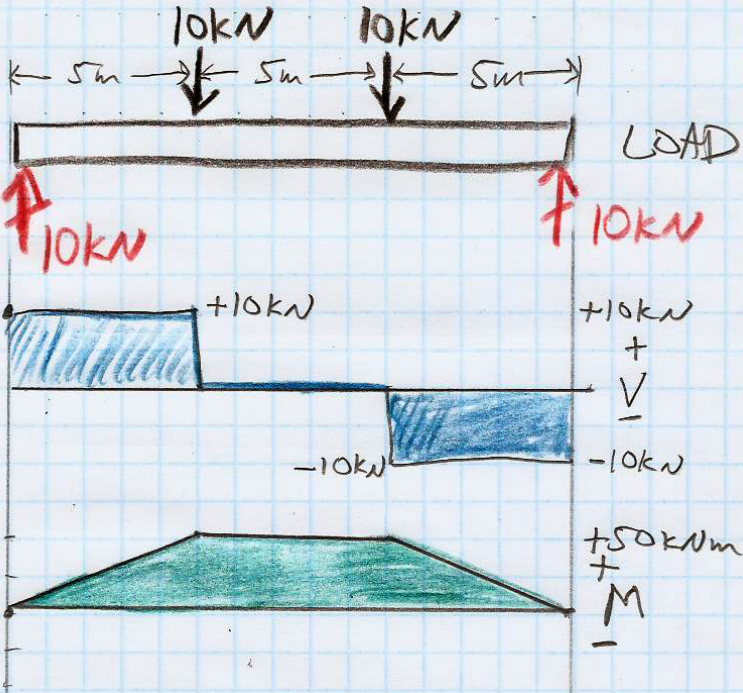 10kN 10kN
5m 5m 5m
LOAD
10kN 10kN
+10kN +10kN
+
V
-
-10kN -10kN
+50kNm
+
M
-